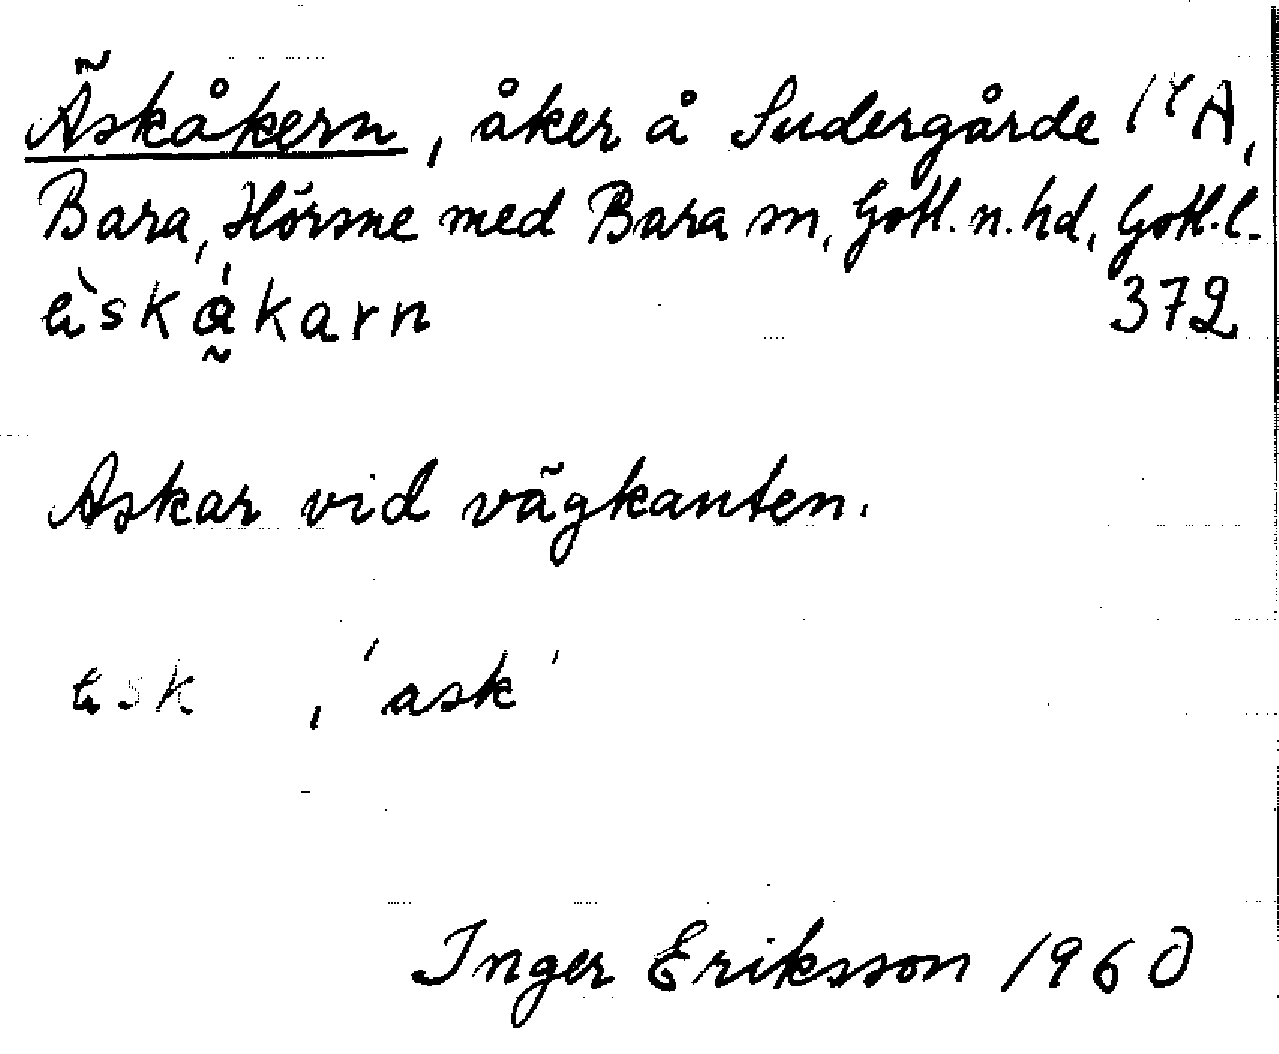 Äskåkern, åker å Sudergårde 1⁴A,
Bara, Hörsne med Bara sn, Gotl. n. hd, Gotl. l.
372
Askar vid vägkanten.
, 'ask'
Inger Eriksson 1960